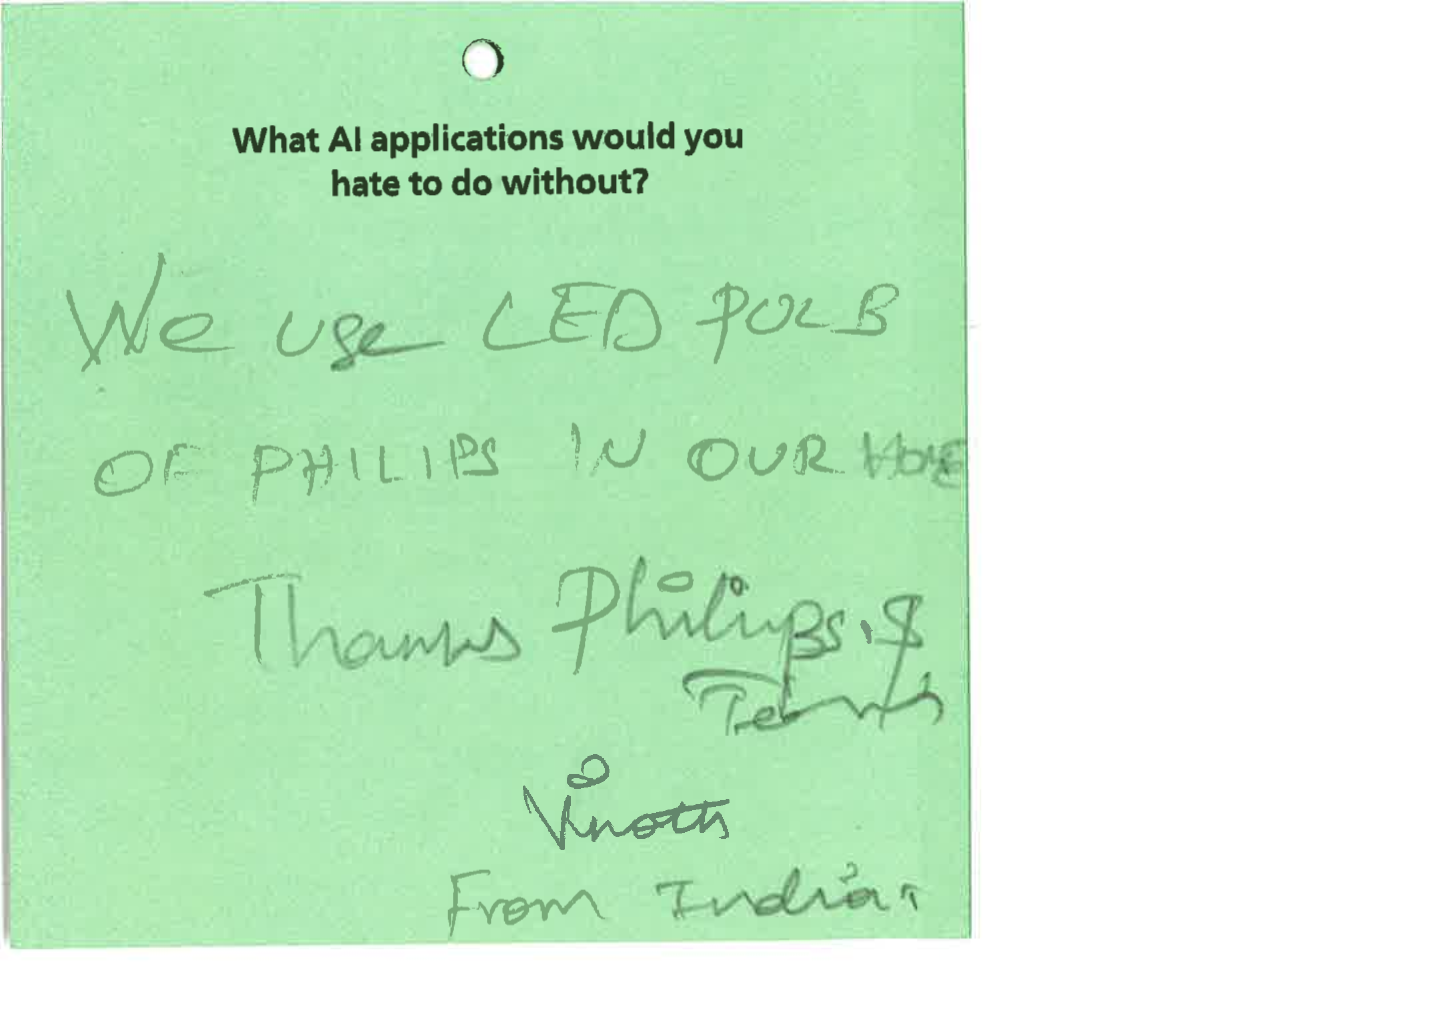 What AI applications would you
hate to do without?
We use LED PULB
OF PHILIPS IN OUR HOME
Thanks Philips &
Vinoth
From India